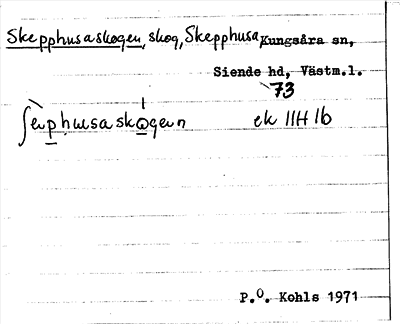 Skepphusaskogen, skog, Skepphusa, Kungsåra sn,
Siende hd, Västm.l.
73
ʃɐphusaskogɐn ek 11H 1b
P.O. Kohls 1971